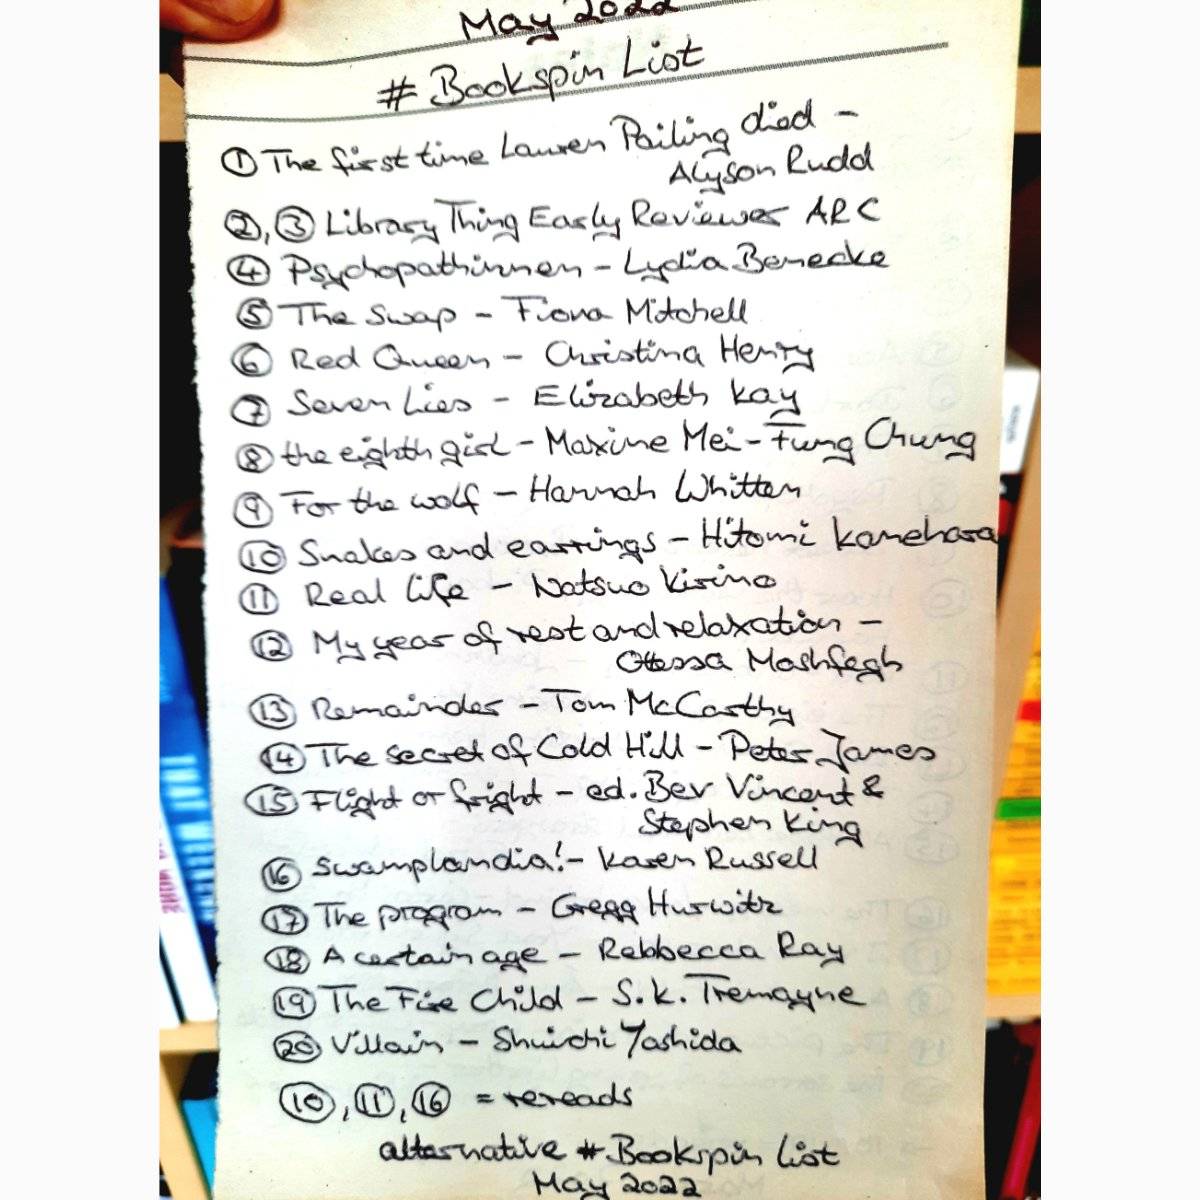 May 2022
# Bookspin List
① The first time Lauren Pailing died –
Alyson Rudd
②, ③ Library Thing Early Reviewer ARC
④ Psychopathinnen – Lydia Benecke
⑤ The Swap – Fiona Mitchell
⑥ Red Queen – Christina Henry
⑦ Seven Lies – Elizabeth Kay
⑧ the eighth girl – Maxine Mei-Fung Chung
⑨ For the wolf – Hannah Whitten
⑩ Snakes and earrings – Hitomi Kanehara
⑪ Real life – Natsuo Kirino
⑫ My year of rest and relaxation –
Ottessa Moshfegh
⑬ Remainder – Tom McCarthy
⑭ The secret of Cold Hill – Peter James
⑮ Flight or fright – ed. Bev Vincent &
Stephen King
⑯ Swamplandia! – Karen Russell
⑰ The program – Gregg Hurwitz
⑱ A certain age – Rebbecca Ray
⑲ The Fire Child – S.K. Tremayne
⑳ Villain – Shuichi Yoshida
⑩, ⑪, ⑯ = rereads
alternative #Bookspin List
May 2022